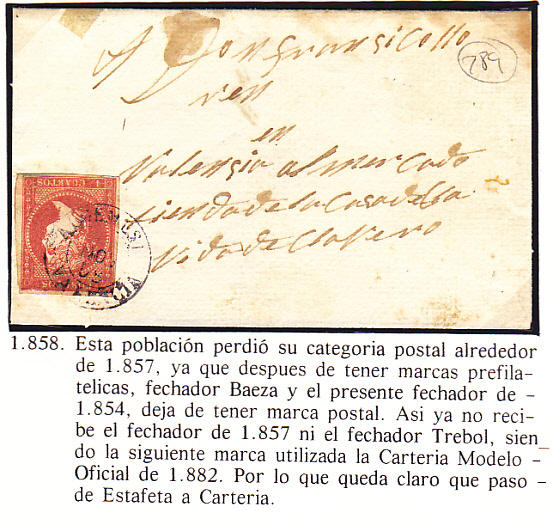 A Don fransico llo
ren
en
Valensia al mercado
tienda de la Casa de lla
Vida de Clavero
289
CUARTOS
ALGEMESI
1.858. Esta población perdió su categoria postal alrededor
de 1.857, ya que despues de tener marcas prefila-
telicas, fechador Baeza y el presente fechador de -
1.854, deja de tener marca postal. Asi ya no reci-
be el fechador de 1.857 ni el fechador Trebol, sien_
do la siguiente marca utilizada la Carteria Modelo -
Oficial de 1.882. Por lo que queda claro que paso -
de Estafeta a Carteria.